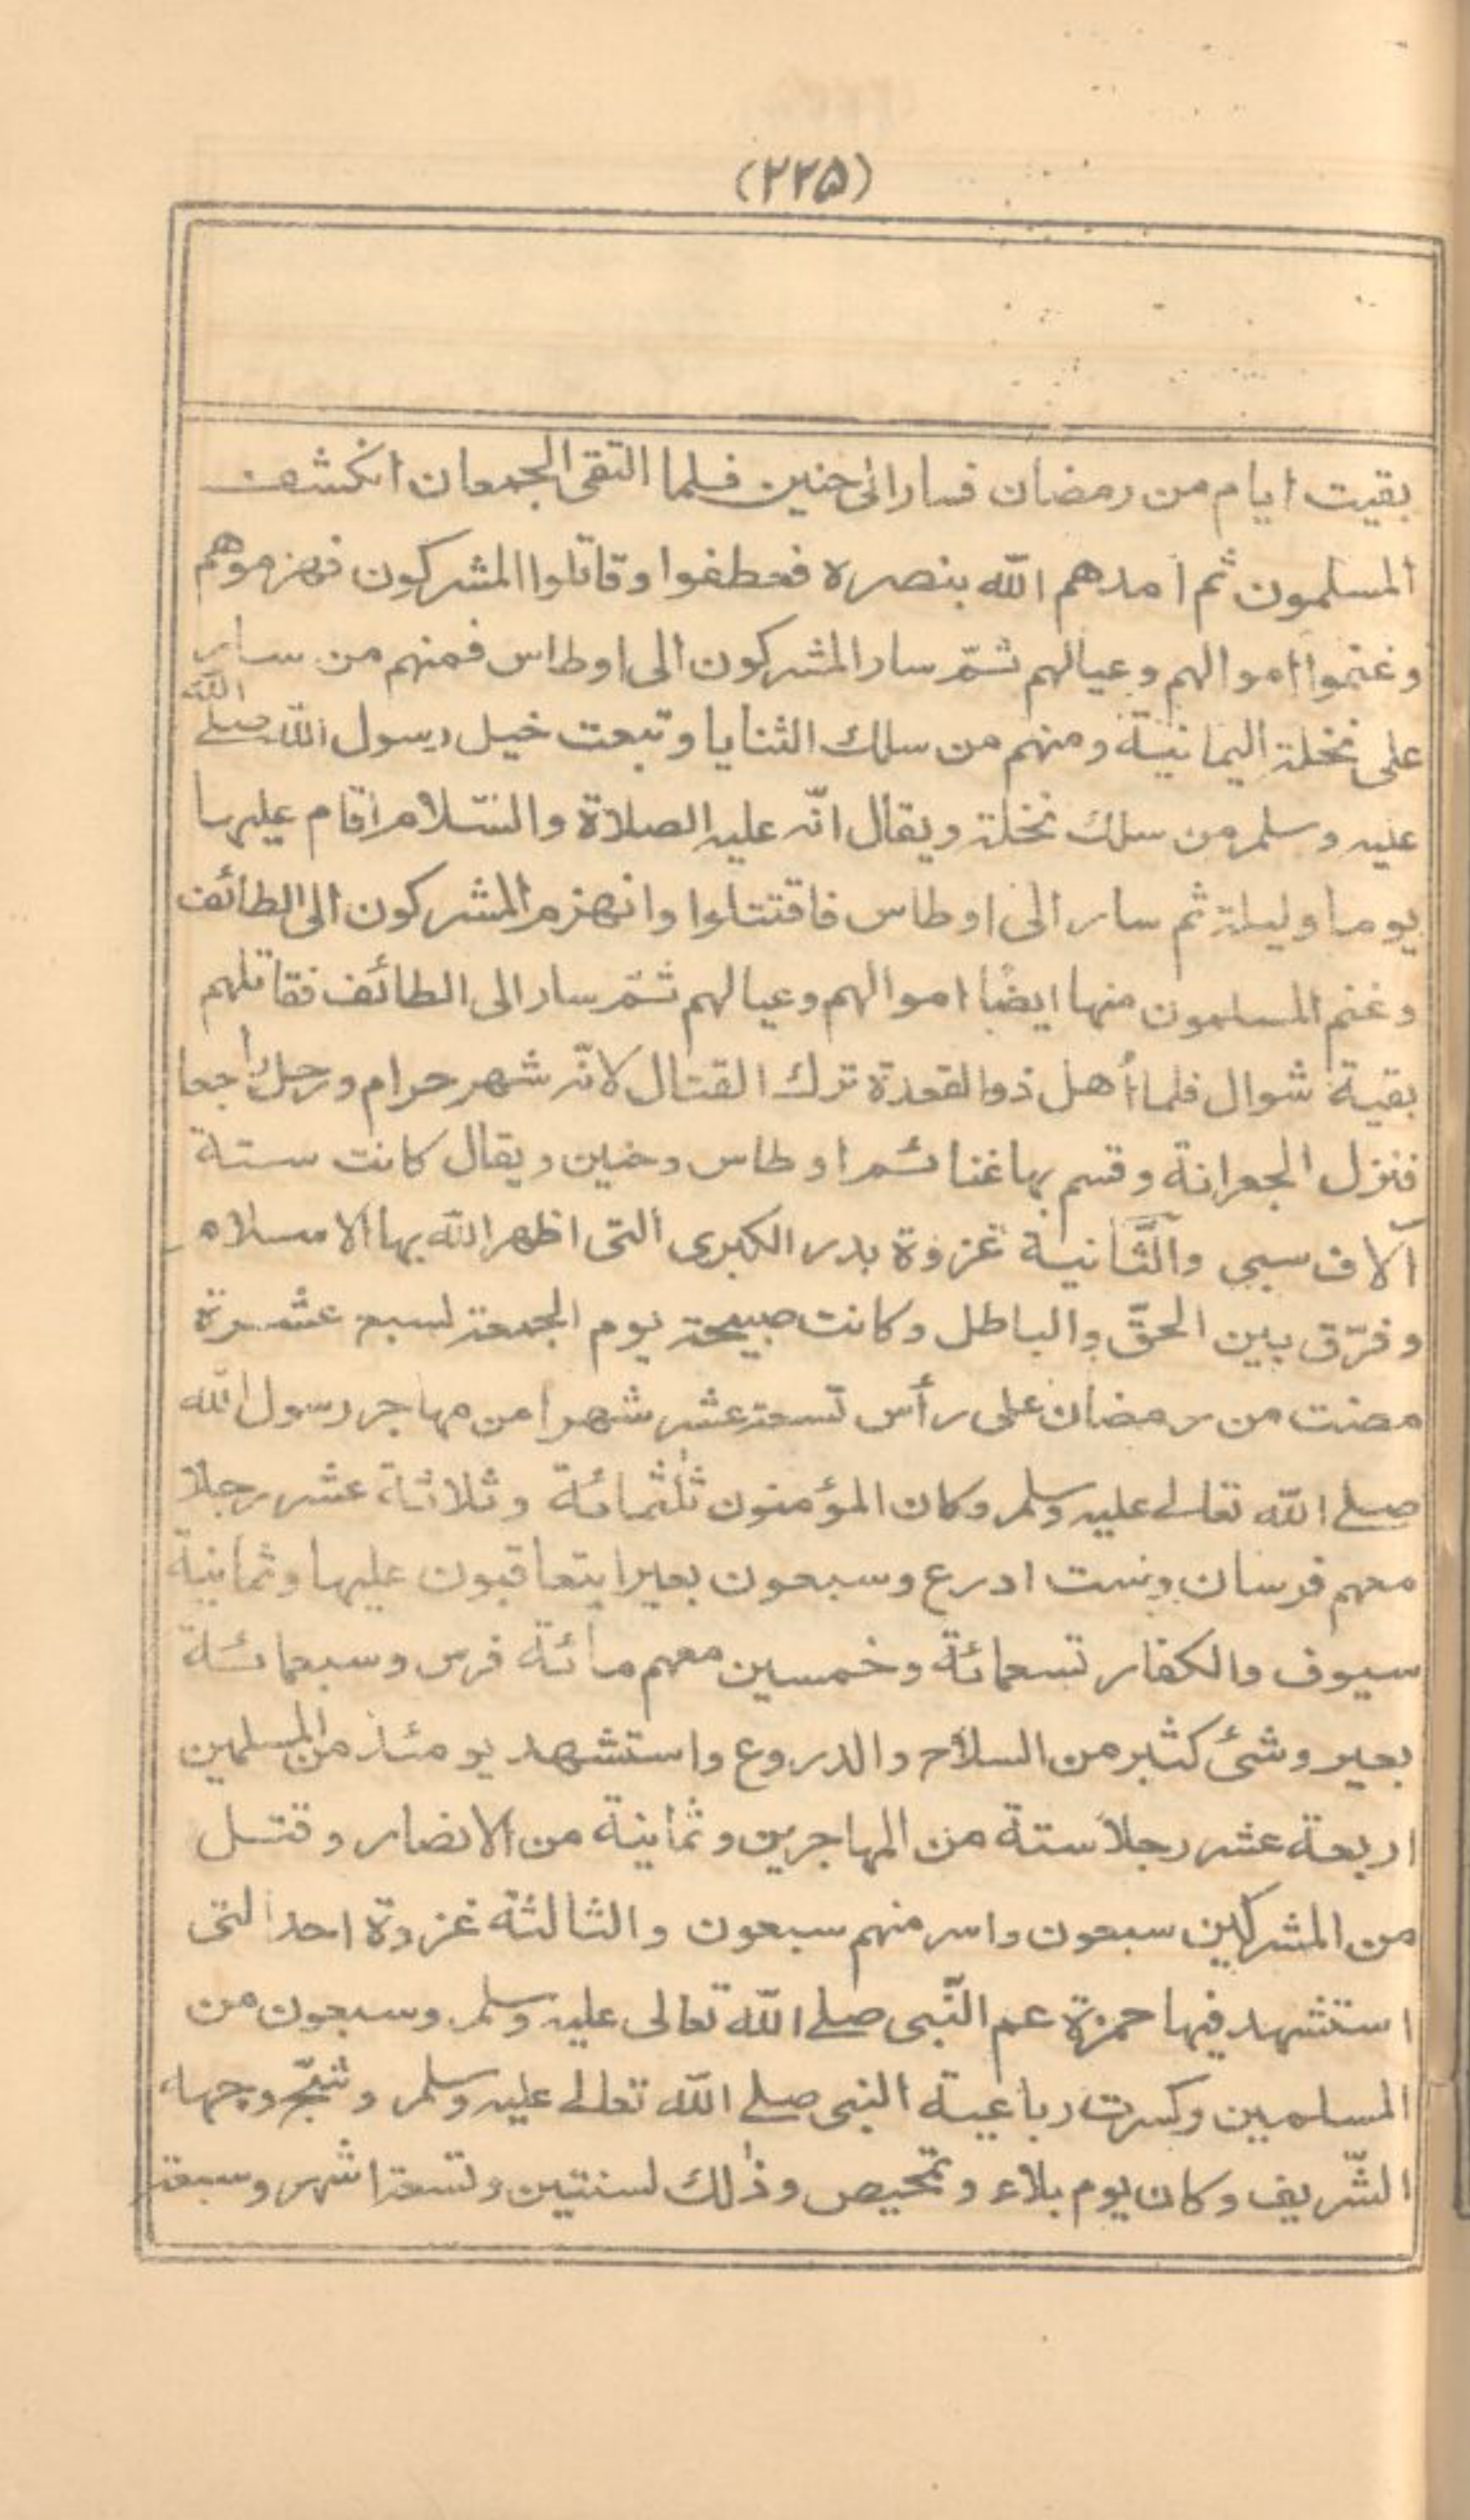 (٢٢۵)
بقيت ايام من رمضان فسار الى حنين فلما التقى الجمعان انكشف
المسلمون ثم امدهم الله بنصره فعطفوا وقاتلوا المشركون فهزموهم
وغنموا اموالهم وعيالهم ثمّ سار المشركون الى اوطاس فمنهم من سار
على نخلة اليمانية ومنهم من سلك الثنايا وتبعت خيل رسول الله صلے الله
عليه وسلم من سلك نخلة ويقال انّه عليه الصلاة والسّلام اقام عليها
يوما وليلة ثم سار الى اوطاس فاقتتلوا وانهزم المشركون الى الطائف
وغنم المسلمون منها ايضًا اموالهم وعيالهم ثمّ سار الى الطائف فقاتلهم
بقية شوال فلما أهل ذو القعدة ترك القتال لانّه شهر حرام ورحل راجعا
فنزل الجعرانة وقسم بها غنائم اوطاس وحنين ويقال كانت ستة
آلاف سبي والثّانية غزوة بدر الكبرى التى اظهر الله بها الاسلام
وفرّق بين الحقّ والباطل وكانت صبيحة يوم الجمعة لسبع عشرة
مضت من رمضان على رأس تسعة عشر شهرا من مهاجر رسول الله
صلے الله تعالے عليه وسلم وكان المؤمنون ثلثمائة وثلاثة عشر رجلا
معهم فرسان وست ادرع وسبعون بعيرا يتعاقبون عليها وثمانية
سيوف والكفار تسعمائة وخمسين معهم مائة فرس وسبعمائة
بعير وشئ كثير من السلاح والدروع واستشهد يومئذ من المسلمين
اربعة عشر رجلا ستة من المهاجرين وثمانية من الانصار وقتل
من المشركين سبعون واسر منهم سبعون والثالثة غزوة احد التى
استشهد فيها حمزة عم النّبى صلے الله تعالى عليه وسلم وسبعون من
المسلمين وكسرت رباعية النبى صلے الله تعالے عليه وسلم وشجّ وجهه
الشّريف وكان يوم بلاء وتمحيص وذٰلك لسنتين وتسعة اشهر وسبعة